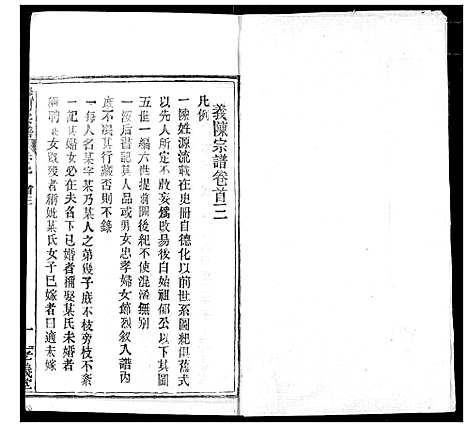 義陳宗譜卷首三
凡例
一陳姓源流載在史冊自德化以前世系圖俱舊式
以先人所定不敢妄爲改易白始祖郁公以下其圖
五世一編六世提前圖後紀不使混淆無別
一後后書記其人品或勇女忠孝婦女節烈叙入譜內
庶不場其行藏否則不錄
一每人名某字某乃某人之第幾子庶不枝旁枝不紊
一記其婦女必在夫名下已婚者稱娶某氏未婚者
稱聘某女毀幾者稱妣某氏女子已嫁者曰適未嫁